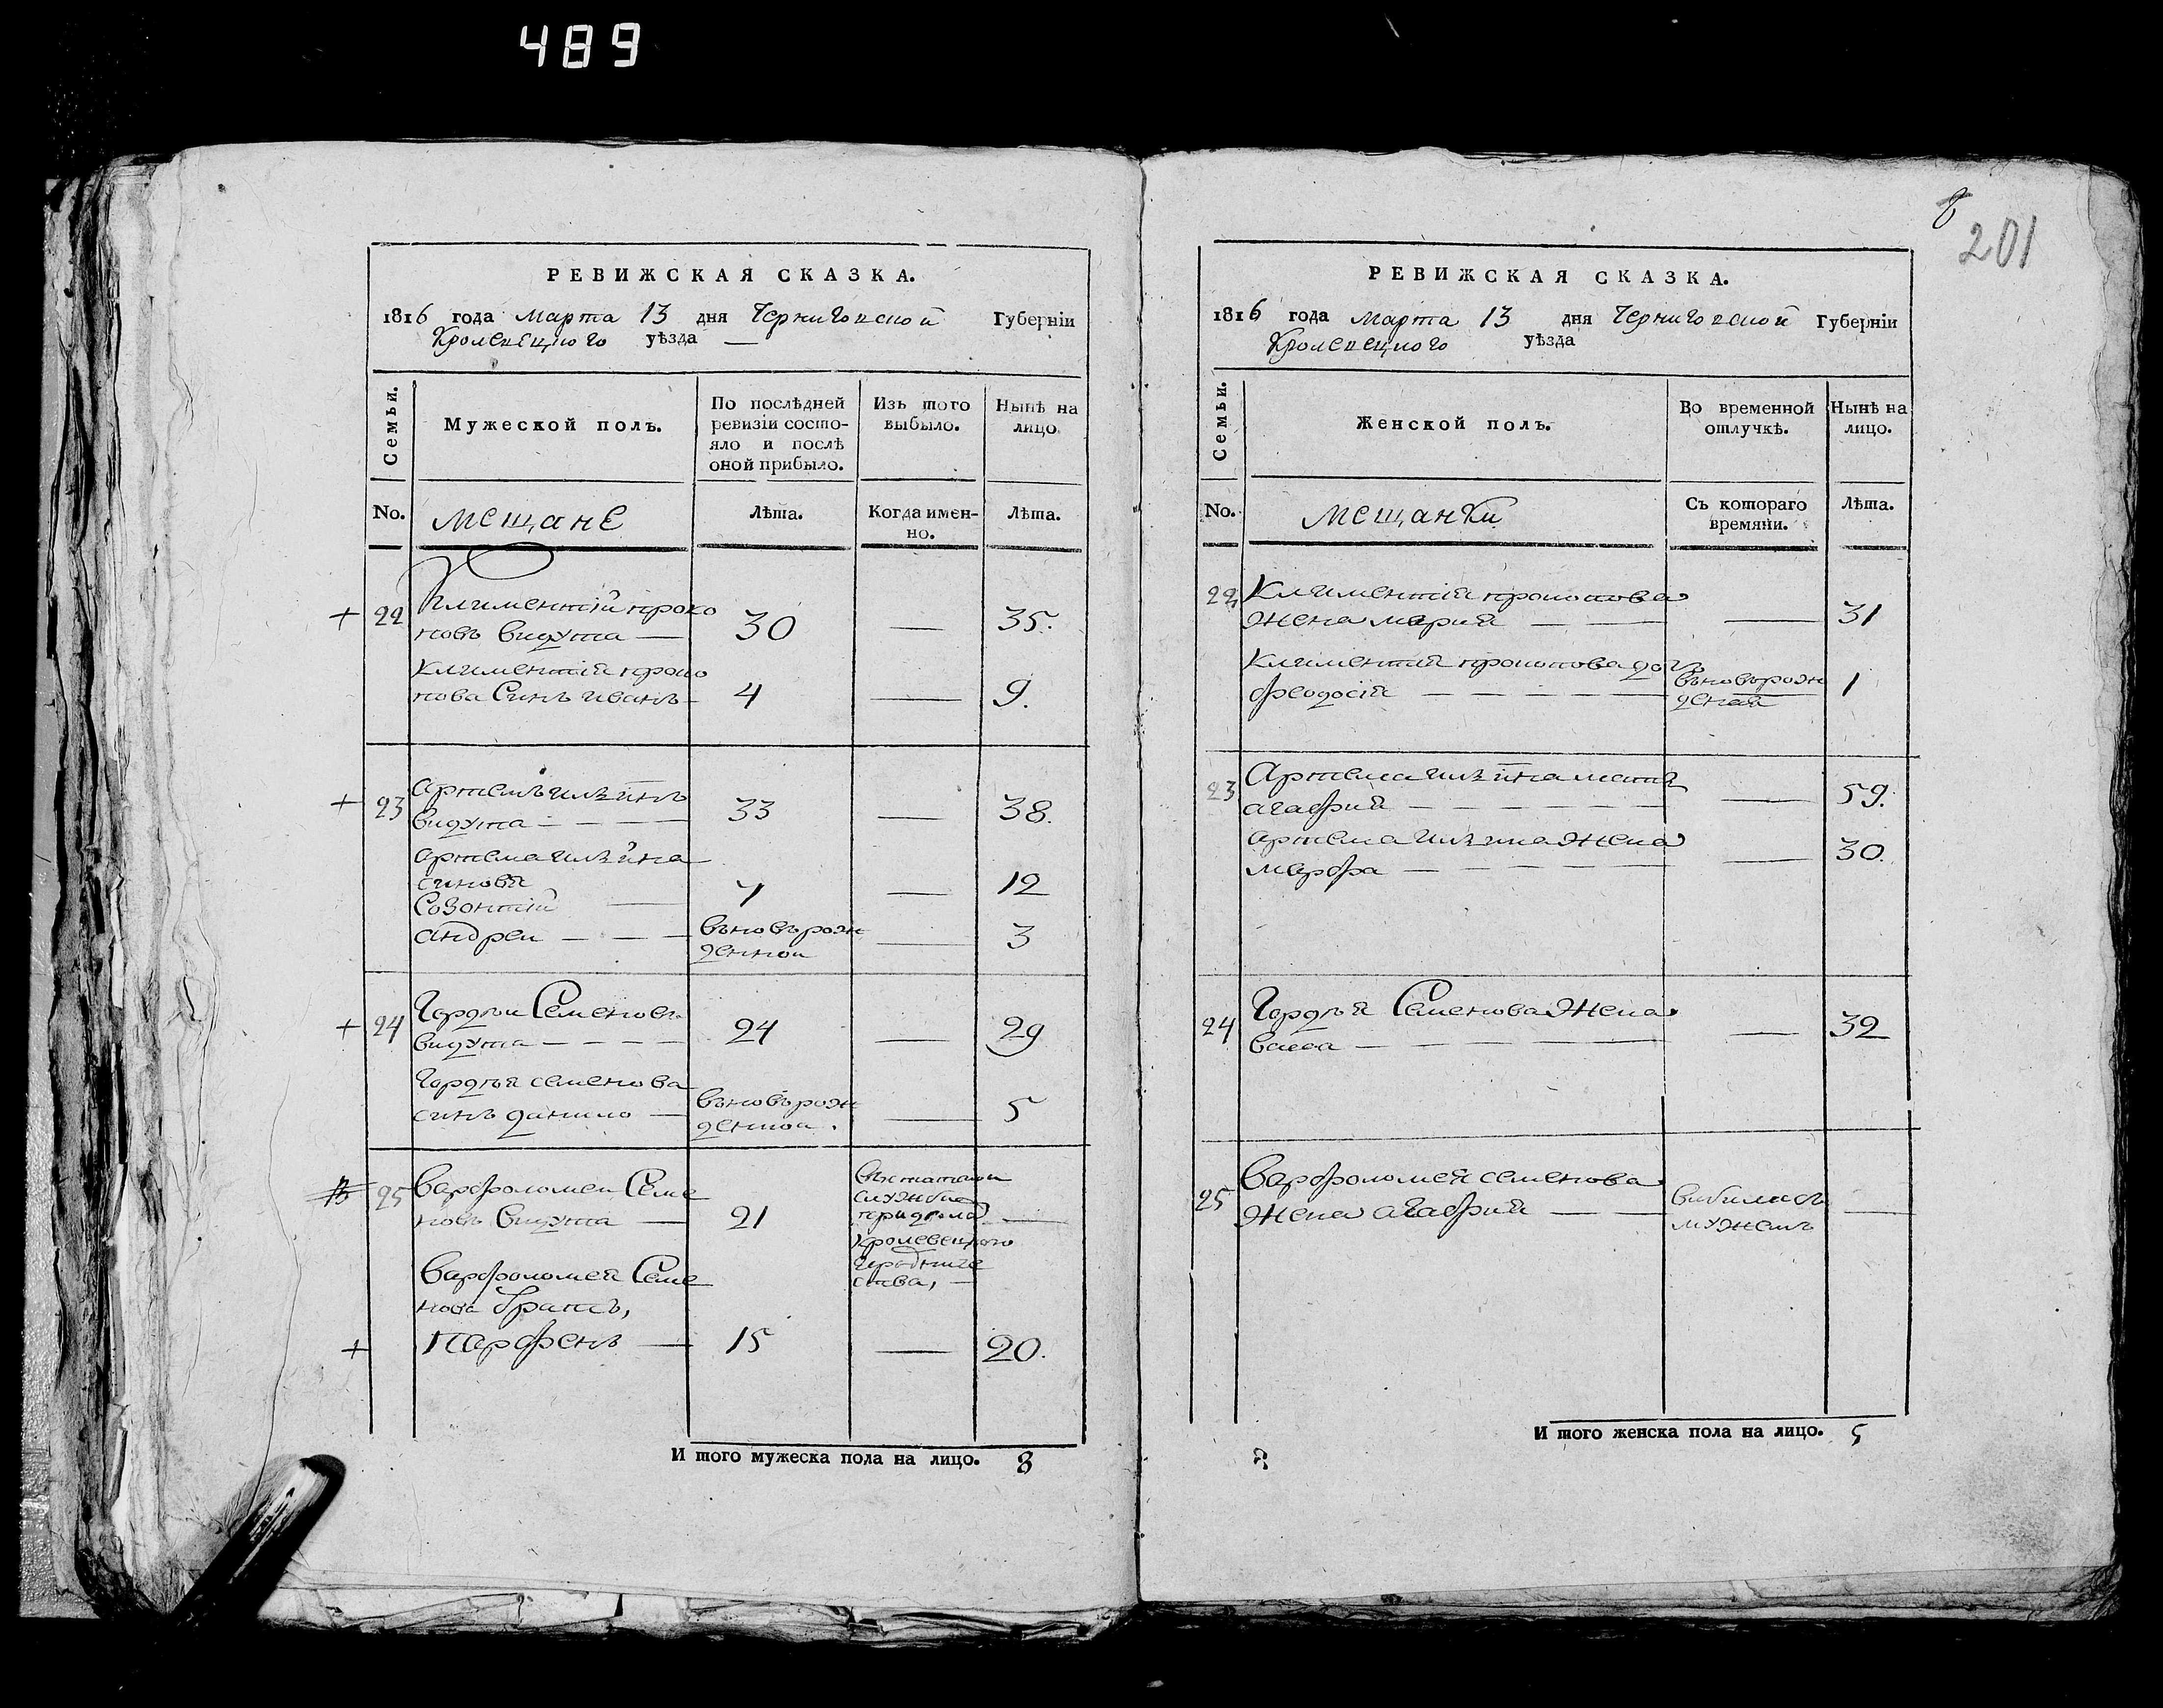 489
РЕВИЖСКАЯ СКАЗКА.
1816 года марта 13 дня Черниговской Губерніи
Кролевецкого уѣзда —
Семьи.
Мужеской полъ.
По послѣдней
ревизіи состо-
яло и послѣ
оной прибыло.
Изъ того
выбыло.
Нынѣ на
лицо.
No.
мещане
Лѣта.
Когда имен-
но.
Лѣта.
+ 22 Климентій проко 30 — 35.
повъ видута —
Климентія проко
пова синъ иванъ 4 — 9.
+ 23 артемъ 33 — 38.
видута — — —
артема
синовя
Созонтій — 7 — 12
андреи — — — въновърож — 3
деннои
+ 24 Гордѣи Семеновъ 24 — 29
видута — — — —
Гордѣя семенова
синъ данило — въновърож — 5
деннои.
25 варфоломеи Семе
новъ видута — 21 —
службы
Кролевецкого
ства, —
варфоломея Семе
нова братъ,
+ парфенъ — 15 — 20.
И того мужеска пола на лицо. 8
201
РЕВИЖСКАЯ СКАЗКА.
1816 года марта 13 дня Черниговской Губерніи
Кролевецкого уѣзда
Семьи.
Женской полъ.
Во временной
отлучкѣ.
Нынѣ на
лицо.
No.
мещанки
Съ котораго
времяни.
Лѣта.
22 Климентія прокопова
жена мария — — — 31
Климентия прокопова дочъ
феодосія — — — — въновърож 1
денная
23 Артема мать
агафия — — — — — 59.
артема жена
марфа — — — — — 30.
24 Гордѣя Семенова жена
васса — — — — — — 32
25 Варфоломея семенова
жена агафия — — вибиласъ —
мужемъ
И того женска пола на лицо. 5